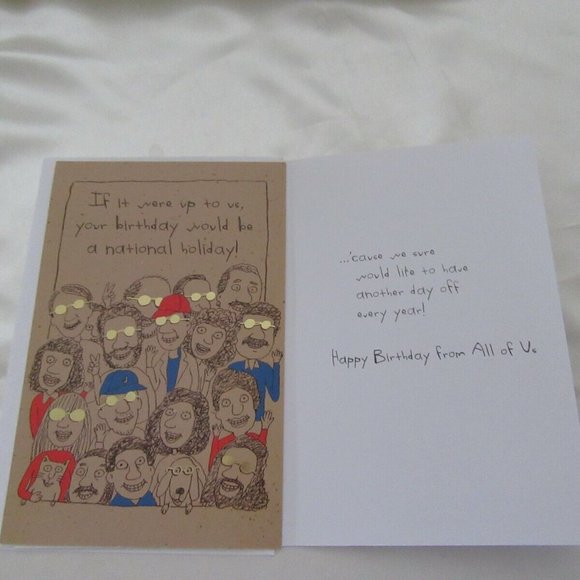 If it were up to us,
your birthday would be
a national holiday!
...'cause we sure
would like to have
another day off
every year!
Happy Birthday from All of Us